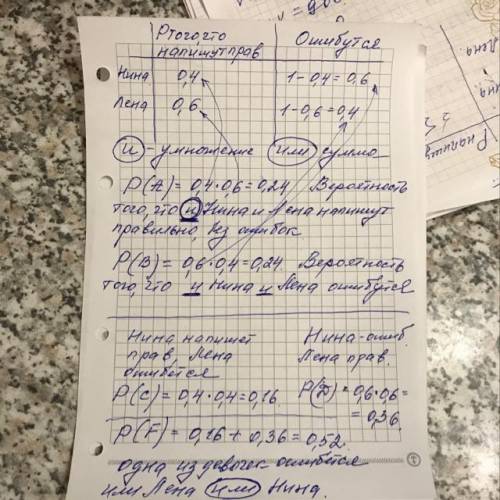 P того, что напишут прав. Ошибутся
Нина 0,4 1-0,4=0,6
Лена 0,6 1-0,6=0,4
и - умножение или сумма
P(A)=0,4·0,6=0,24 Вероятность
того, что и Нина и Лена напишут
правильно, без ошибок
P(B)=0,6·0,4=0,24 Вероятность
того, что и Нина и Лена ошибутся
Нина напишет Нина-ошиб.
прав, Лена Лена прав.
ошибется
P(C)=0,4·0,4=0,16 P(D)=0,6·0,6=
=0,36
P(F)=0,16+0,36=0,52
одна из девочек ошибется
или Лена или Нина.